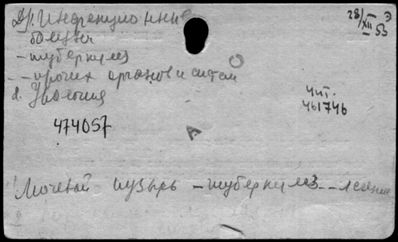 Др. Инфекционные
болезни
- туберкулез
- прочих органов и систем
2. Урология
28/XII 53
Э
чит.
461746
474057
А
Мочевой пузырь - туберкулез - лечение